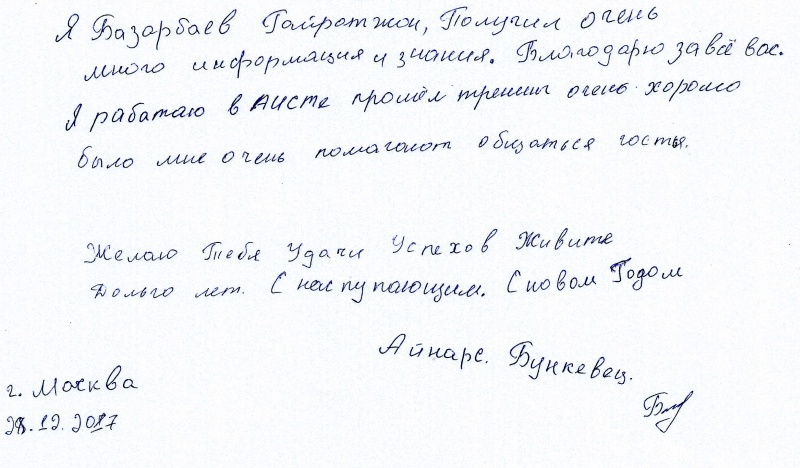 Я Базарбаев Гайратжон, Получил очень
много информация и знания. Благодарю за всё вас.
Я работаю в Аисте прошёл тренинг очень хорошо
было мне очень помагают общаться гостья.
Желаю Тебя Удачи Успехов Живите
Дольго лет. С наступающим. С новом Годом
Айнарс. Бункевец.
г. Москва
28.12.2017